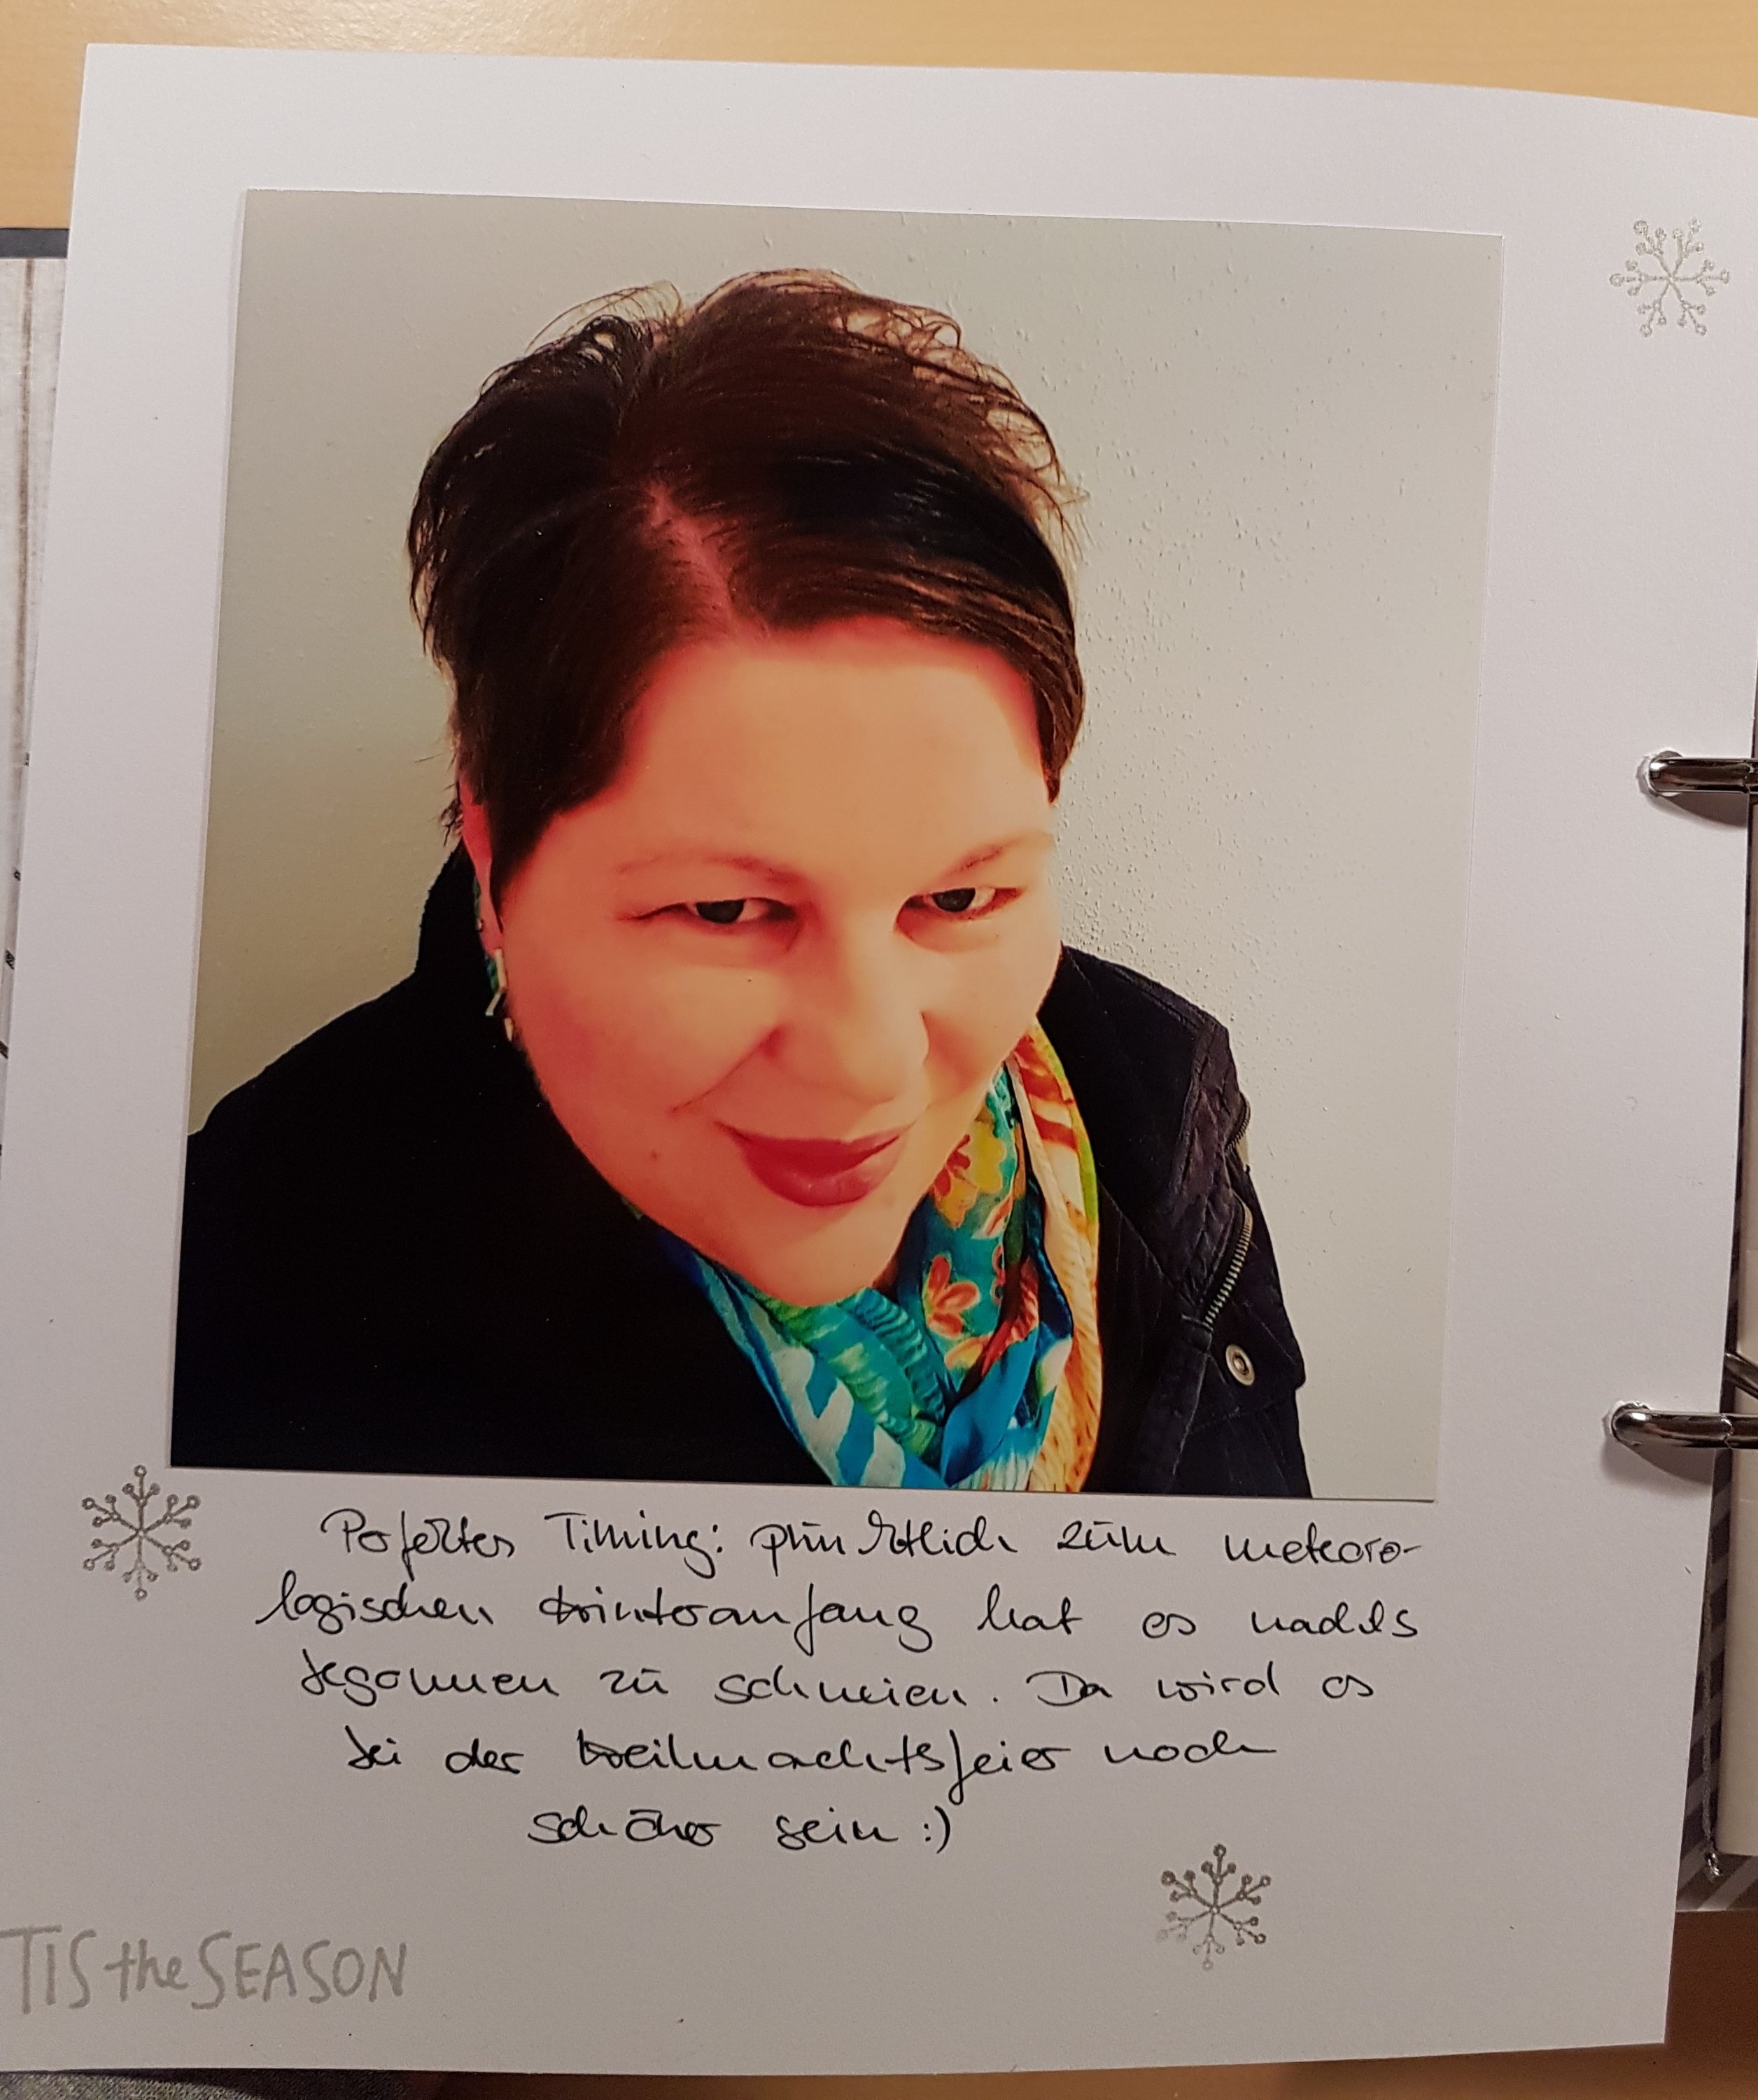 Perfektes Timing: pünktlich zum meteoro-
logischen Winteranfang hat es nachts
begonnen zu schneien. Da wird es
bei der Weihnachtsfeier noch
schöner sein :)
TIS the SEASON